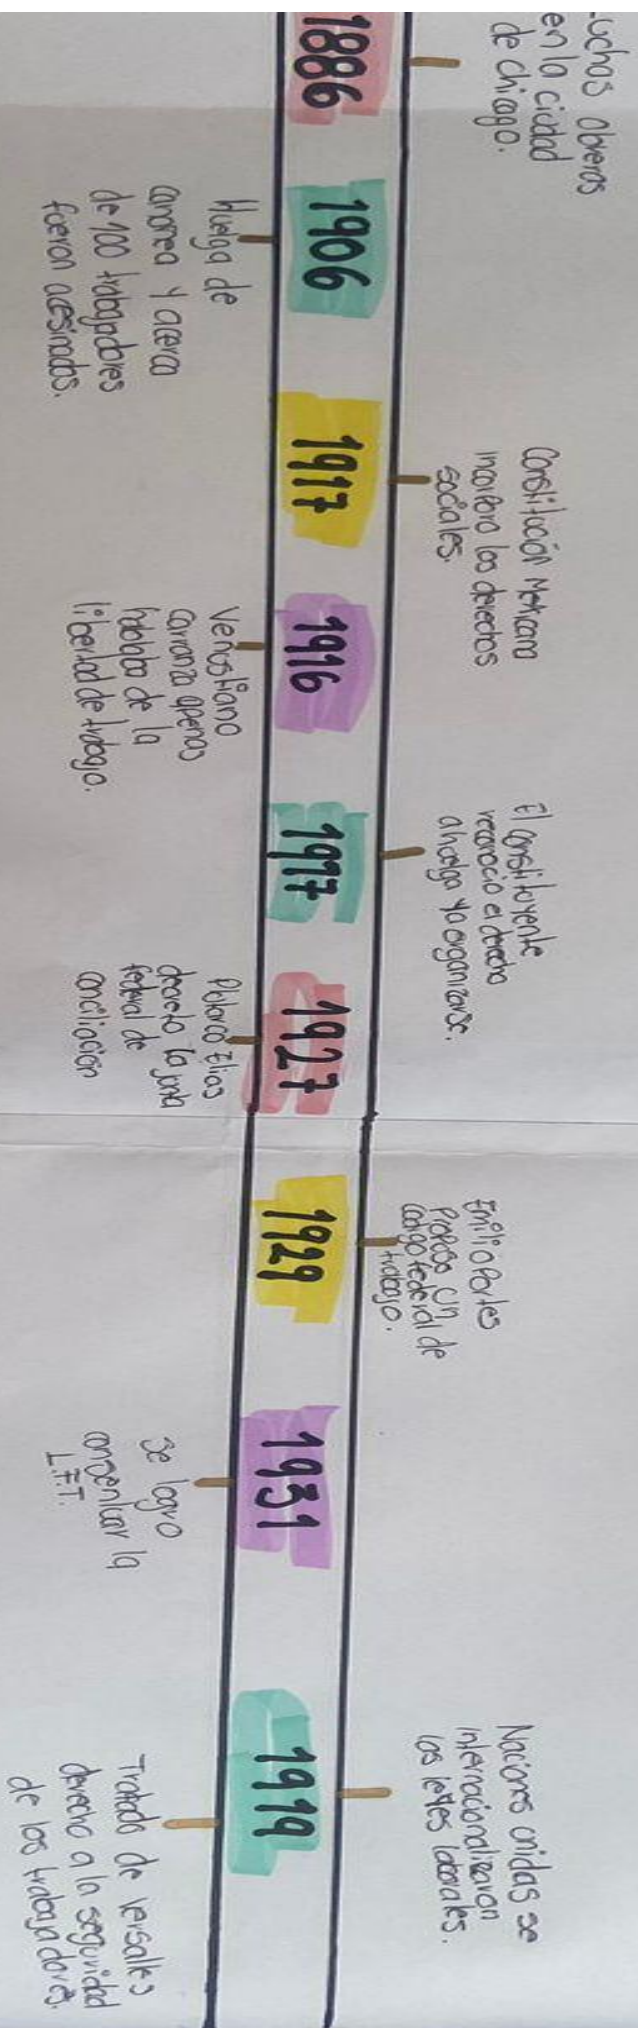 Luchas obreras
en la ciudad
de chicago.
1886
1906
Huelga de
cananea y acerca
de 100 trabajadores
fueron acesinados.
Constitución Mexicana
incorporo los derechos
sociales.
1917
1916
Venustiano
carranza apenas
hablaba de la
libertad de trabajo.
El constituyente
reconocio el derecho
a huelga y a organizarse.
1917
1927
Plutarco Elias
decreto la junta
federal de
conciliación
Emilio Portes
Propuso un
codigo federal de
trabajo.
1929
1931
se logro
consensuar la
L.F.T.
Naciones unidas se
internacionalizaron
las leyes laborales.
1919
Tratado de versalles
derecho a la seguridad
de los trabajadores.